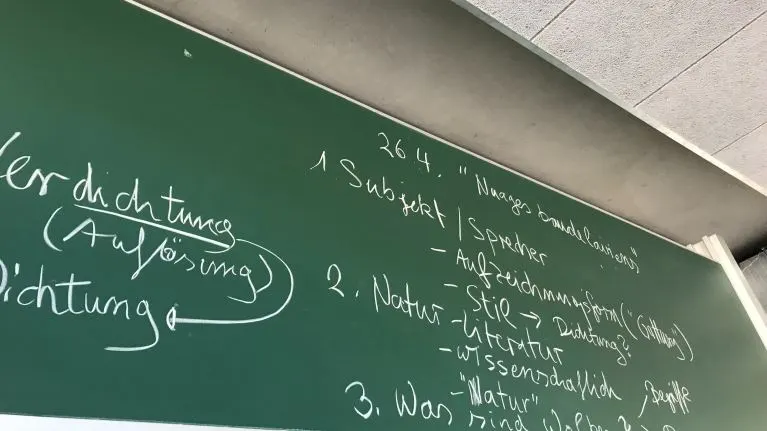 Verdichtung
(Auflösung)
Dichtung
26 4. "Nuages baudelairiens"
1. Subjekt / Sprecher
- Aufzeichnungsform ("Gattung)
- Stil → Dichtung?
2. Natur - Literatur
- wissenschaftlich
- "Natur" , Begriffe
3. Was sind Wolken?